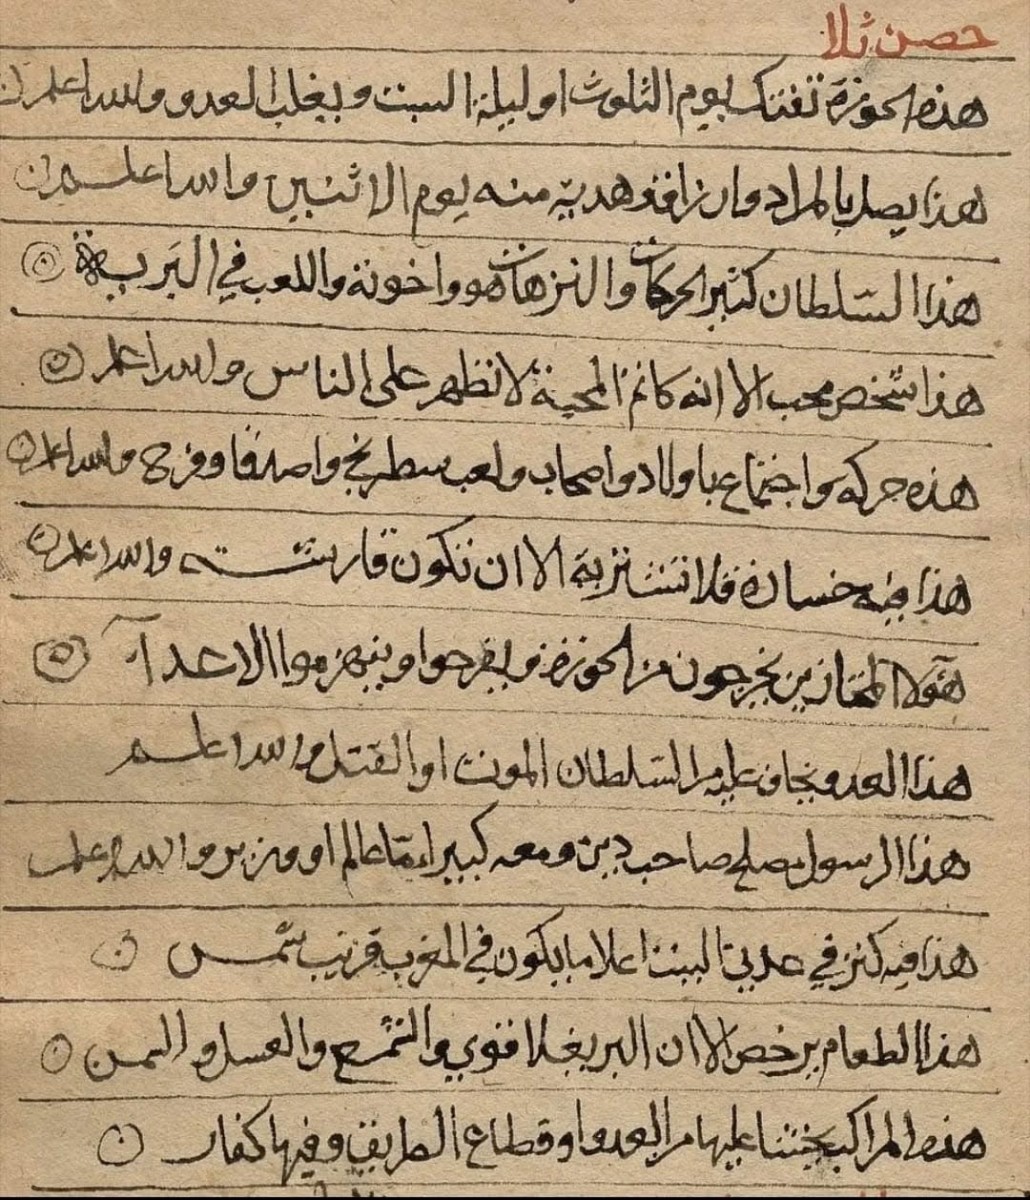 حصن ثلا
هذه الحوزة تفتك يوم الثلوث او ليلة السبت ويغلب العدو والله اعلم
هذا يصل بالمراد وان زاقه هدية منه يوم الاثنين والله اعلم
هذا السلطان كثير الحركات والنزهات هو واخوته واللعب في البرية
هذا شخص محب الا انه كاتم المحبة لا تظهر على الناس والله اعلم
هذه حركه واجتماع باولاد واصحاب ولعب سطرنج واصدقا وفرح والله اعلم
هذا فيه خسارة فلا تشتريه الا ان تكون قار والله اعلم
هولا المغازيين يخرجون من الحوزة ويفرحوا وينهزموا الاعدآ
هذا العدو يخاف عليه من السلطان الموت او القتل والله اعلم
هذا الرسول يصلح صاحب دين ومعه كبير اما عالم او وزير والله اعلم
هذا فيه كنز في البيت اعلا ما يكون في المغرب قريب شمس
هذا الطعام يرخص الا ان البر يغلا قوي والشمع والعسل والسمن
هذه المراكب يختشا عليها من العدو او قطاع الطريق وفيها كفار